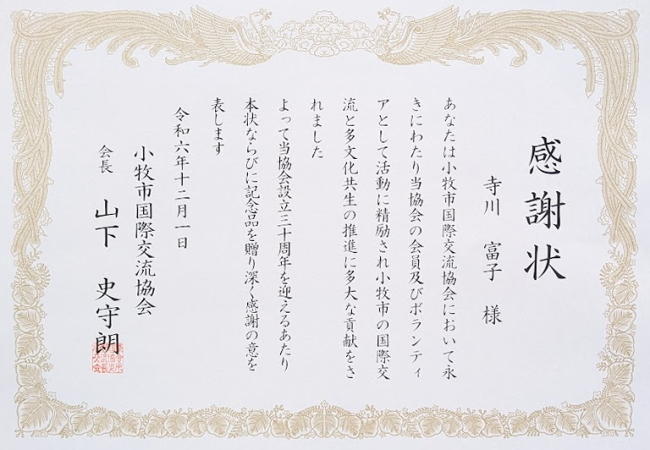 感謝状
寺川 富子 様
あなたは小牧市国際交流協会において永
きにわたり当協会の会員及びボランティ
アとして活動に精励され小牧市の国際交
流と多文化共生の推進に多大な貢献をさ
れました
よって当協会設立三十周年を迎えるあたり
本状ならびに記念品を贈り深く感謝の意を
表します
令和六年十二月一日
小牧市国際交流協会
会長 山下 史守朗